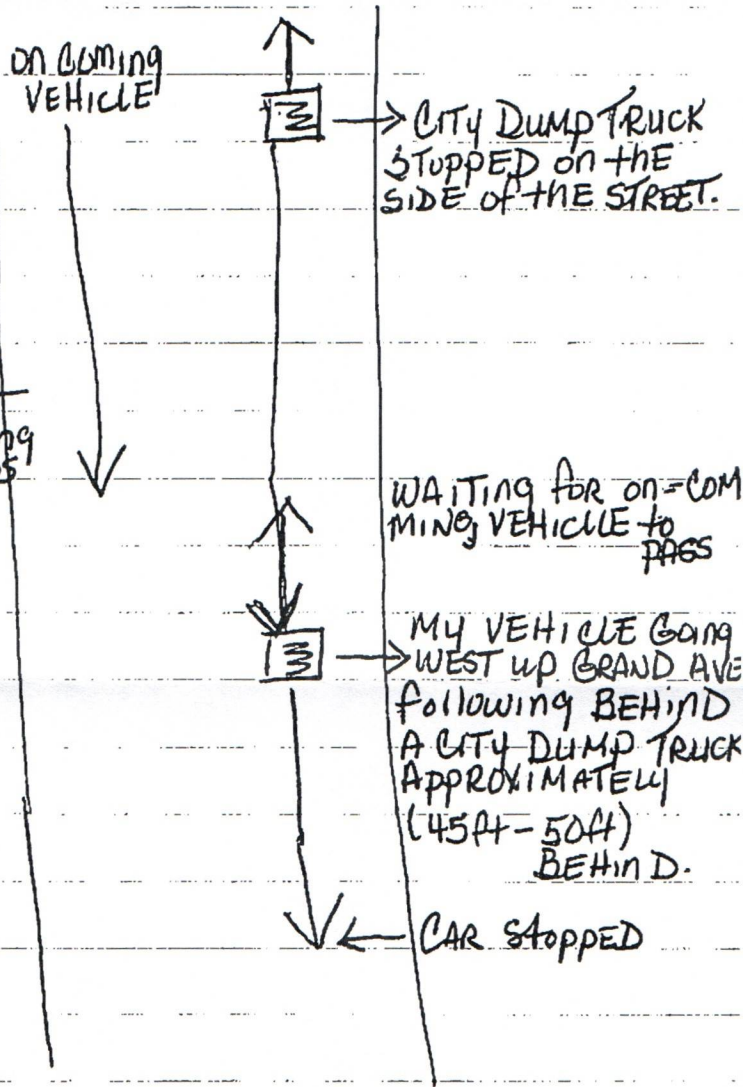 on coming
VEHICLE
CITY DUMP TRUCK
STOPPED on the
SIDE of the STREET.
WAITING FOR on-COM
MING VEHICLE to
PASS
MY VEHICLE Going
WEST up GRAND AVE
Following BEHIND
A CITY DUMP TRUCK
APPROXIMATELY
(45ft-50ft)
BEHIND.
CAR STOPPED